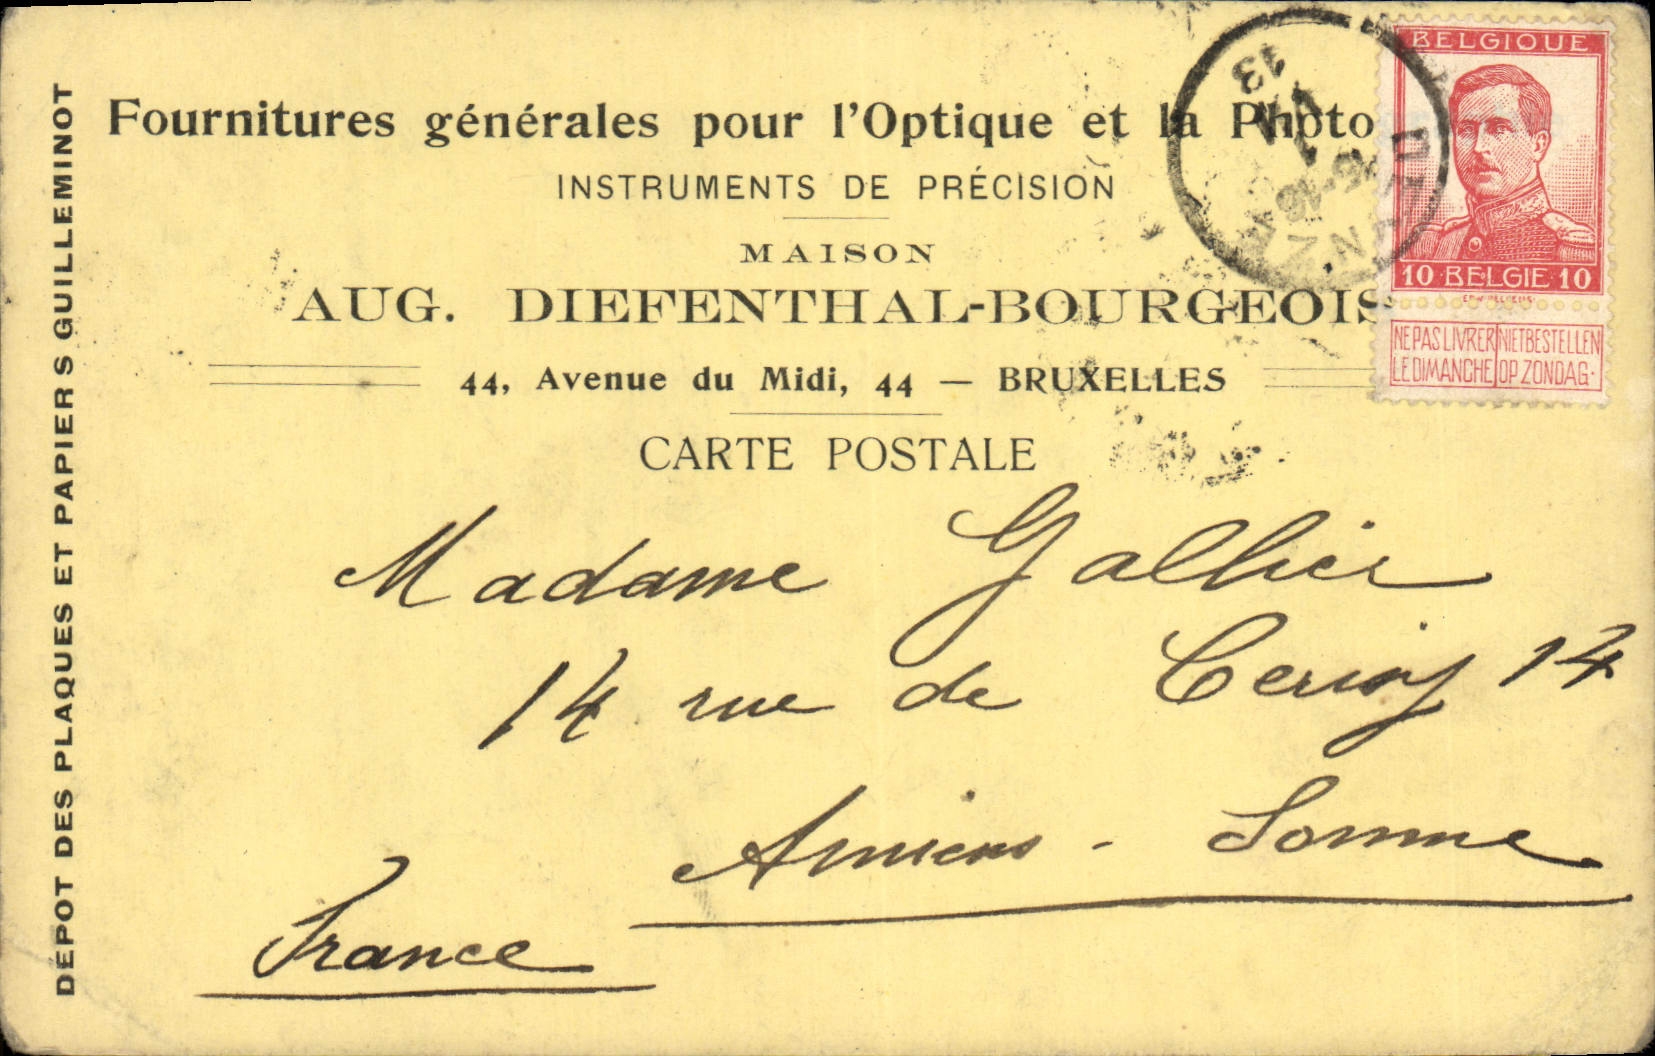 DÉPOT DES PLAQUES ET PAPIERS GUILLEMINOT
Fournitures générales pour l'Optique et la Photo
INSTRUMENTS DE PRÉCISION
MAISON
AUG. DIEFENTHAL-BOURGEOIS
44, Avenue du Midi, 44 — BRUXELLES
CARTE POSTALE
BELGIQUE
10 BELGIE 10
NE PAS LIVRER LE DIMANCHE
NIET BESTELLEN OP ZONDAG.
13
Madame
14 rue de 14
Amiens - Somme
France